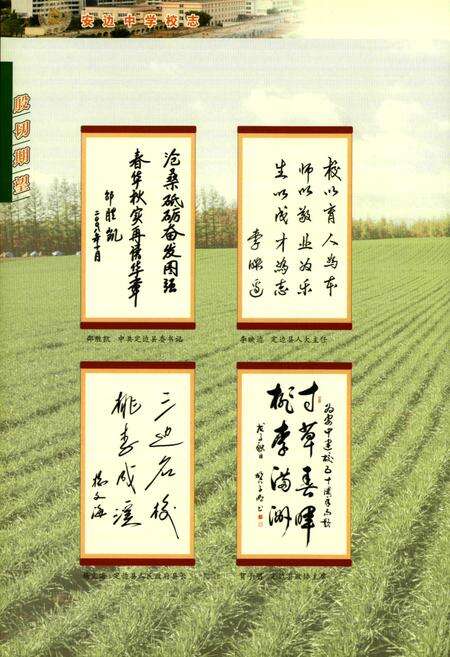 安边中学校志
殷切期望
沧桑砥砺奋发图强
春华秋实再谱华章
邵胜凯
二〇〇八年十月
邵胜凯 中共定边县委书记
校以育人为本
师以敬业为乐
生以成才为志
李映适
李映适 定边县人大主任
三边名校
桃李成溪
杨文海
杨文海 定边县人民政府县长
为安中建校五十周年而题
寸草春晖
桃李满洲
定边县政协主席